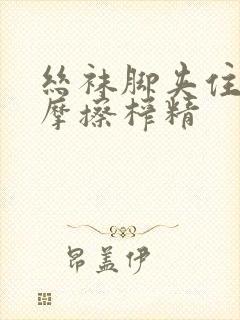 丝袜脚夹住
摩擦榨精
昂盖伊